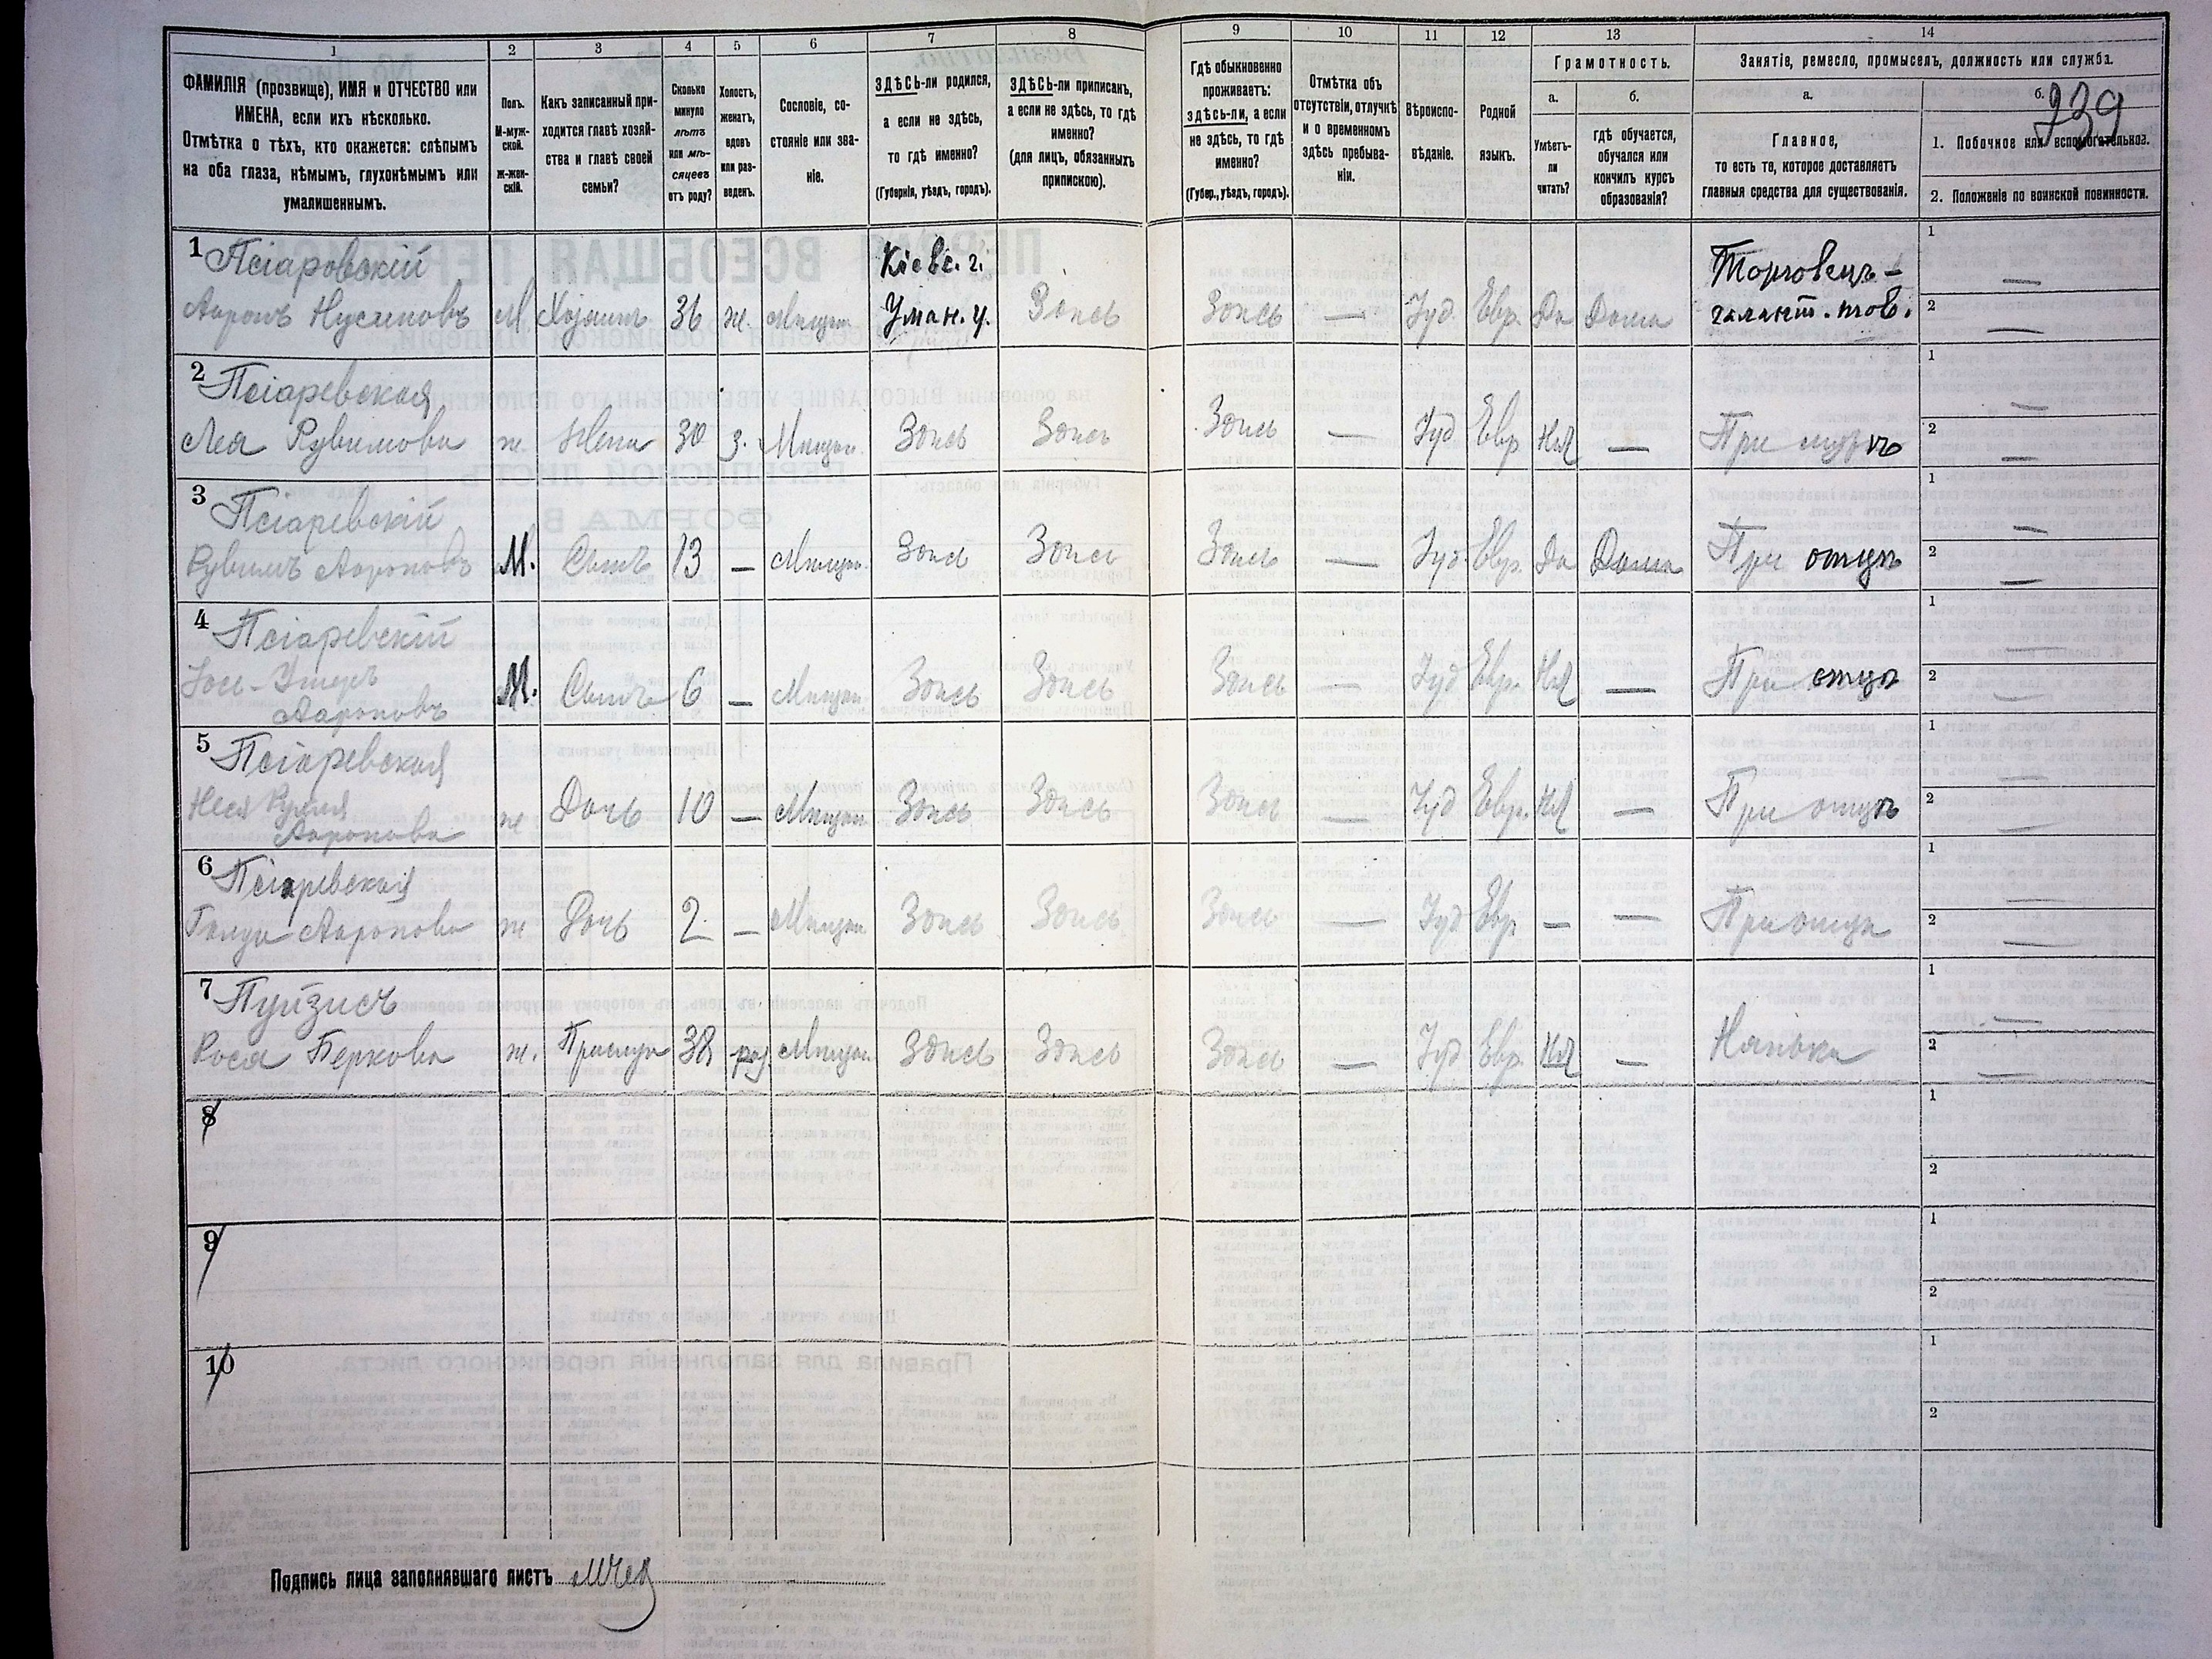 1 2 3 4 5 6 7 8 9 10 11 12 13 14
ФАМИЛІЯ (прозвище), ИМЯ и ОТЧЕСТВО или
ИМЕНА, если ихъ нѣсколько.
Отмѣтка о тѣхъ, кто окажется: слѣпымъ
на оба глаза, нѣмымъ, глухонѣмымъ или
умалишеннымъ.
Полъ.
М-муж-
ской.
ж-жен-
скій.
Какъ записанный при-
ходится главѣ хозяй-
ства и главѣ своей
семьи?
Сколько
минуло
лѣтъ
или мѣ-
сяцевъ
отъ роду?
Холостъ,
женатъ,
вдовъ
или раз-
веденъ.
Сословіе, со-
стояніе или зва-
ніе.
ЗДѢСЬ-ли родился,
а если не здѣсь,
то гдѣ именно?
(Губернія, уѣздъ, городъ).
ЗДѢСЬ-ли приписанъ,
а если не здѣсь, то гдѣ
именно?
(для лицъ, обязанныхъ
припискою).
Гдѣ обыкновенно
проживаетъ:
здѣсь-ли, а если
не здѣсь, то гдѣ
именно?
(Губер., уѣздъ, городъ).
Отмѣтка объ
отсутствіи, отлучкѣ
и о временномъ
здѣсь пребыва-
ніи.
Вѣроиспо-
вѣданіе.
Родной
языкъ.
Грамотность.
а.
Умѣетъ-
ли
читать?
б.
гдѣ обучается,
обучался или
кончилъ курсъ
образованія?
Занятіе, ремесло, промыселъ, должность или служба.
а.
Главное,
то есть те, которое доставляетъ
главныя средства для существованія.
б.
239
1. Побочное или вспомогательное.
2. Положеніе по воинской повинности.
1 Псіаровскій
Ааронъ Нусиновъ М Хозяинъ 36 ж. Мѣщан. Кіевс. г. Уман. у. Здѣсь Здѣсь — Іуд. Евр. Да Дома Торговецъ - галант. тов. 1 — 2 —
2 Псіаревская
Лея Рувимова ж. Жена 30 з. Мѣщан. Здѣсь Здѣсь Здѣсь — Іуд Евр Нѣт — При мужѣ 1 — 2 —
3 Псіаревскій
Рувимъ Аароновъ М. Сынъ 13 — Мѣщан. Здѣсь Здѣсь Здѣсь — Іуд. Евр. Да Дома При отцѣ 1 — 2 —
4 Псіаревскій
Аароновъ М. Сынъ 6 — Мѣщан Здѣсь Здѣсь Здѣсь — Іуд Евр. Нѣт — При отцѣ 1 — 2 —
5 Псіаревская
Ааронова ж Дочь 10 — Мѣщан Здѣсь Здѣсь Здѣсь — Іуд Евр. Нѣт — При отцѣ 1 — 2 —
6 Псіаревская
Ааронова ж Дочь 2 — Мѣщан Здѣсь Здѣсь Здѣсь — Іуд Евр — — При отцѣ 1 — 2 —
7 Пуйзисъ
Рося Беркова ж. Прислуга 38 раз Мѣщан. Здѣсь Здѣсь Здѣсь — Іуд Евр. Нѣт — Нянька 1 — 2 —
8 1 2
9 1 2
10 1 2
Подпись лица заполнявшаго листъ